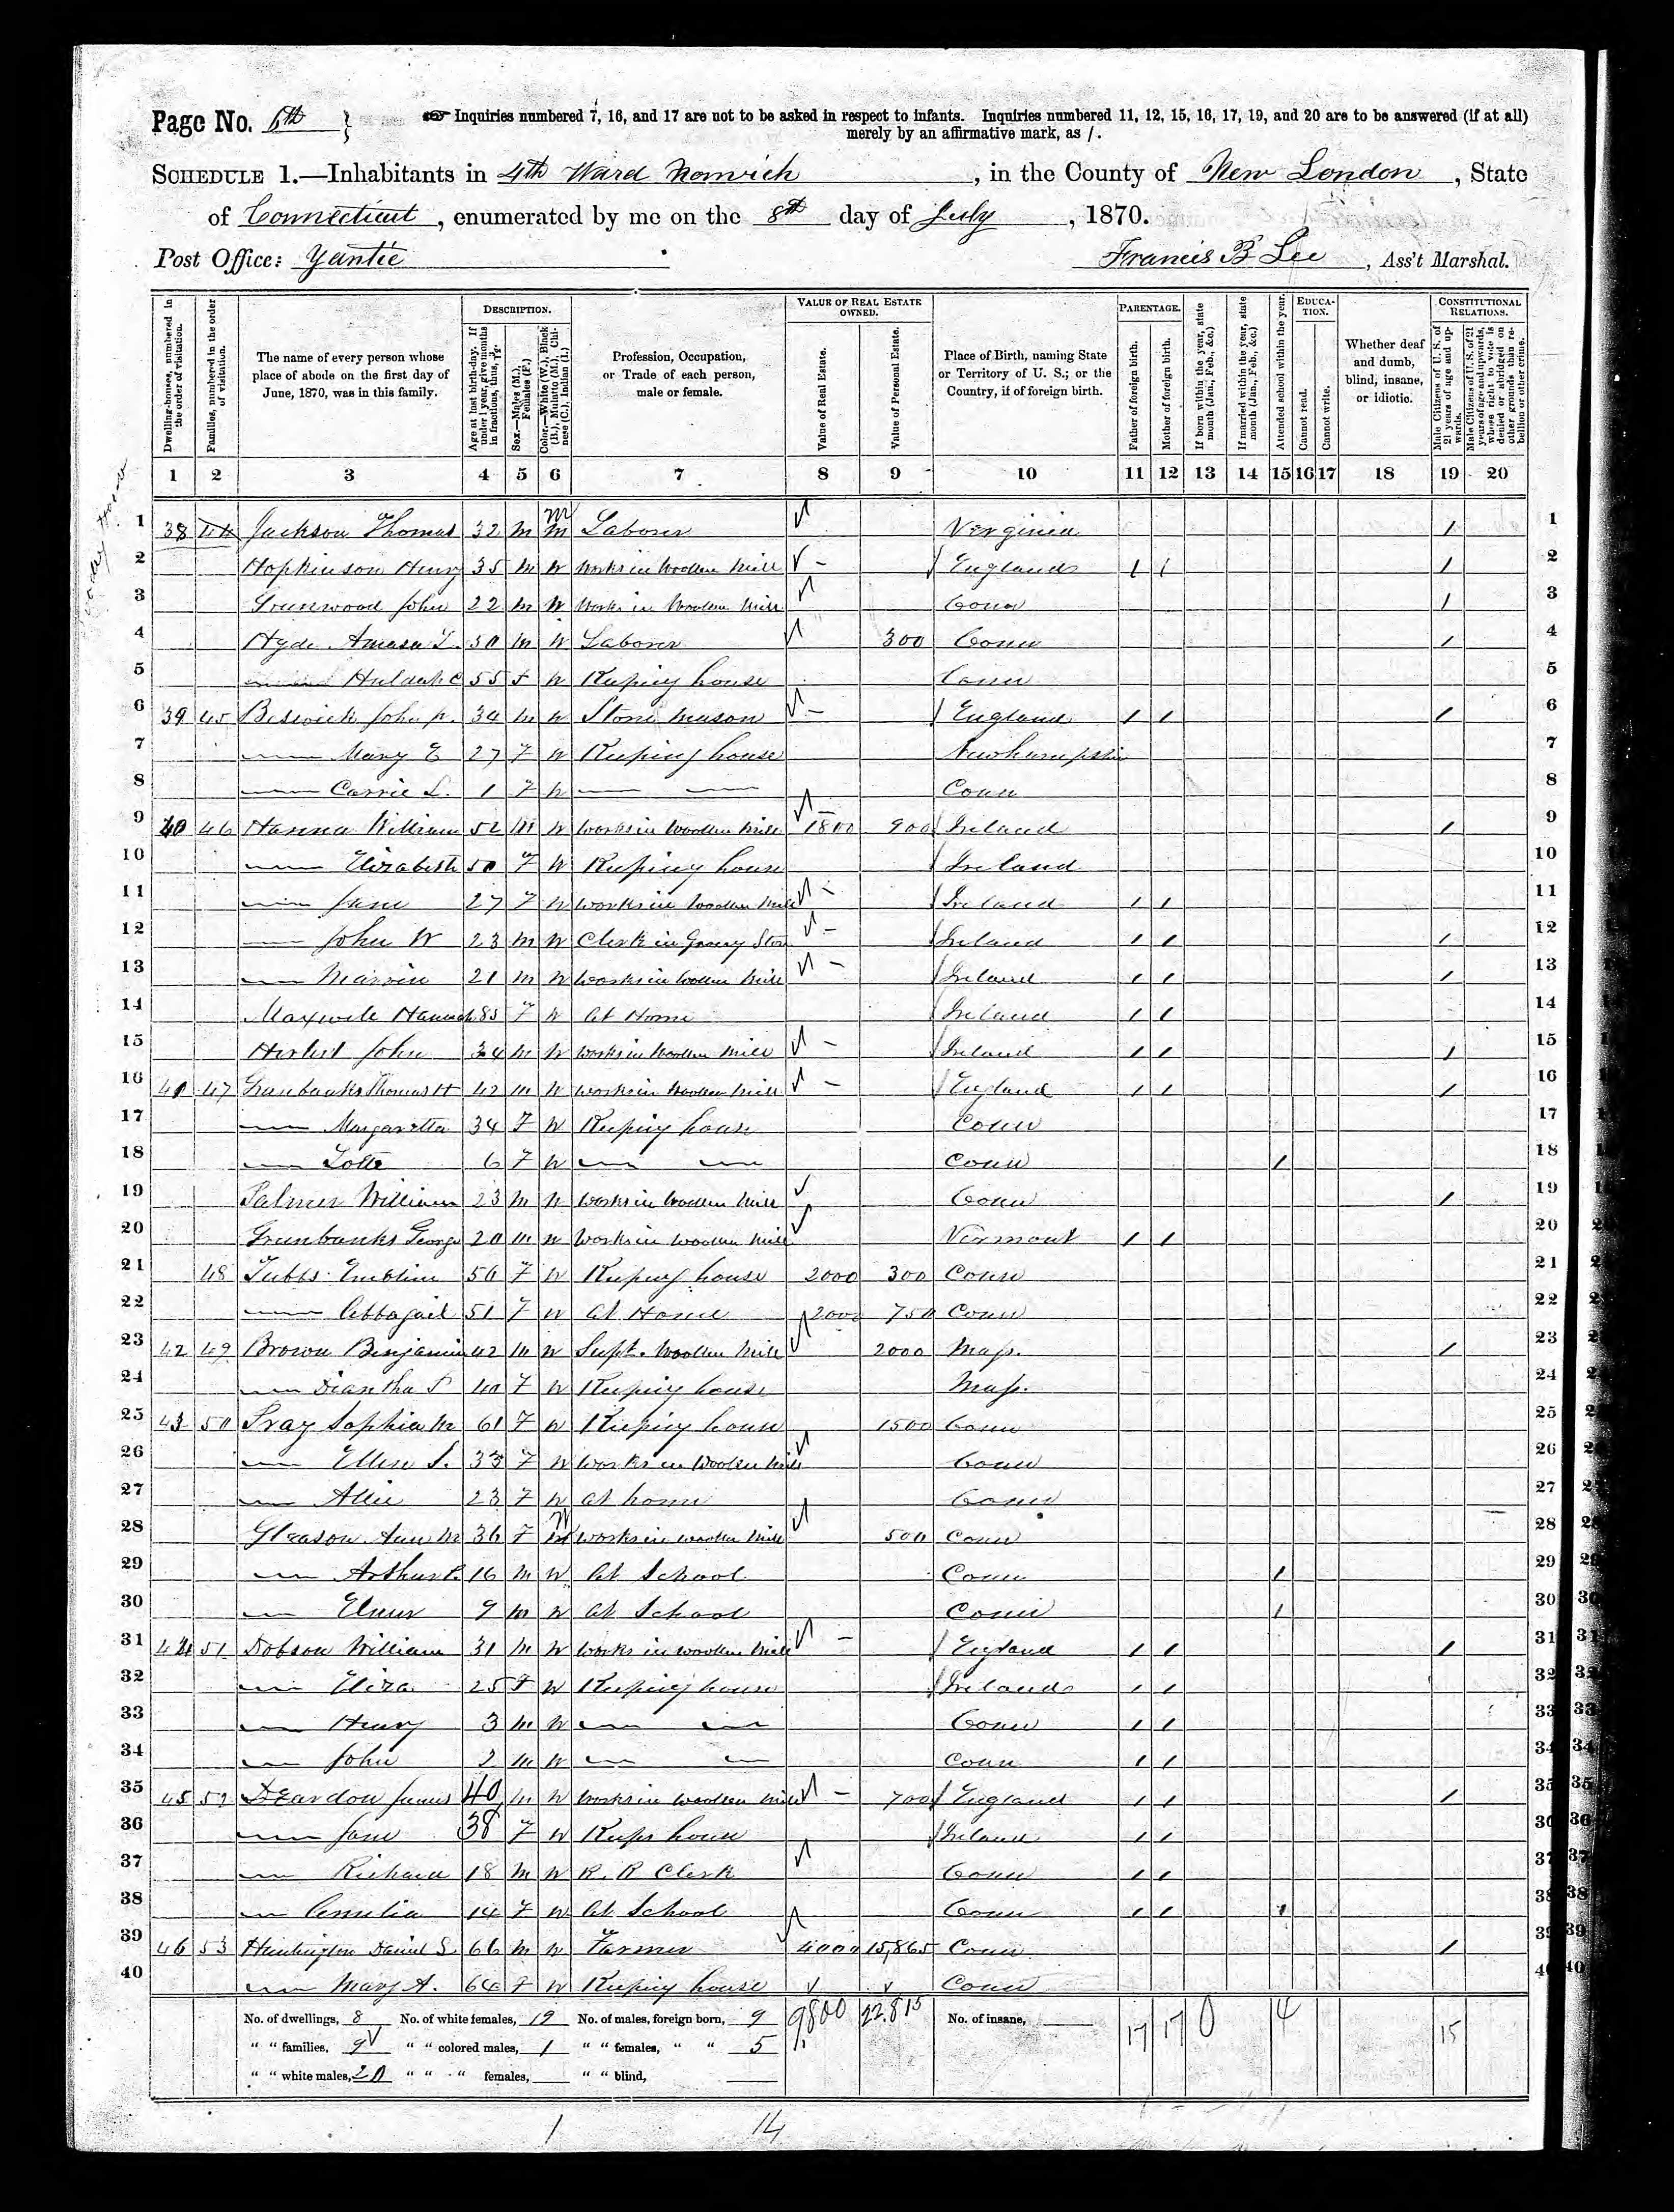 Page No. 6th }
☞ Inquiries numbered 7, 16, and 17 are not to be asked in respect to infants. Inquiries numbered 11, 12, 15, 16, 17, 19, and 20 are to be answered (if at all)
merely by an affirmative mark, as /.
SCHEDULE 1.—Inhabitants in 4th Ward Norwich, in the County of New London, State
of Connecticut, enumerated by me on the 8th day of July, 1870.
Post Office: Yantic
Francis B Lee, Ass't Marshal.
Dwelling-houses, numbered in the order of visitation.
Families, numbered in the order of visitation.
The name of every person whose place of abode on the first day of June, 1870, was in this family.
DESCRIPTION.
Age at last birth-day. If under 1 year, give months in fractions, thus, 3/12.
Sex.—Males (M.), Females (F.)
Color.—White (W.), Black (B.), Mulatto (M.), Chinese (C.), Indian (I.)
Profession, Occupation, or Trade of each person, male or female.
VALUE OF REAL ESTATE OWNED.
Value of Real Estate.
Value of Personal Estate.
Place of Birth, naming State or Territory of U. S.; or the Country, if of foreign birth.
PARENTAGE.
Father of foreign birth.
Mother of foreign birth.
If born within the year, state month (Jan., Feb., &c.)
If married within the year, state month (Jan., Feb., &c.)
Attended school within the year.
EDUCATION.
Cannot read.
Cannot write.
Whether deaf and dumb, blind, insane, or idiotic.
CONSTITUTIONAL RELATIONS.
Male Citizens of U. S. of 21 years of age and upwards.
Male Citizens of U. S. of 21 years of age and upwards, whose right to vote is denied or abridged on other grounds than rebellion or other crime.
1 2 3 4 5 6 7 8 9 10 11 12 13 14 15 16 17 18 19 20
1 38 44 Jackson Thomas 32 m m Laborer Virginia / 1
2 Hopkinson Henry 35 m W Works in Woollen Mill England / / / 2
3 Greenwood John 22 m W Works in Woollen Mill Conn / 3
4 Hyde Amasa L. 30 m W Laborer 300 Conn / 4
5 Huldah C 55 f W Keeping house Conn 5
6 39 45 Beswick John 34 m W Stone Mason England / / / 6
7 Mary E 27 F W Keeping house Newhampshire 7
8 Carrie L. 1 F W Conn 8
9 40 46 Hanna William 52 M W Works in Woollen Mill 1800 900 Ireland / 9
10 Elizabeth 50 F W Keeping house Ireland 10
11 Jane 27 F W Works in Woollen Mill Ireland / / 11
12 John W 23 m W Clerk in Grocery Store Ireland / / / 12
13 Marvin 21 m W Works in Woollen Mill Ireland / / / 13
14 Hannah F W At Home Ireland / / 14
15 John 34 M W Works in Woollen Mill Ireland / / / 15
16 41 47 Thomas H 42 m W Works in Woollen Mill England / / / 16
17 Margaretta 34 F W Keeping house Conn 17
18 6 F W Conn / 18
19 Palmer William 23 m W Works in Woollen Mill Conn / 19
20 Greenbanks George 20 m W Works in Woollen Mill Vermont / / 20
21 48 Tubbs Emeline F W Keeping house 2000 300 Conn 21
22 Abbagail 51 F W At Home 2000 750 Conn 22
23 42 49 Brown Benjamin 42 m W Supt. Woollen Mill 2000 Mass. / 23
24 Diantha 40 F W Keeping house Mass. 24
25 43 50 Pray Sophia M 61 F W Keeping house 1500 Conn 25
26 Ellen S. 33 F W Works in Woollen Mill Conn 26
27 Allie 23 F W At home Conn 27
28 Gleason Ann M 36 F W Works in woollen Mill 500 Conn 28
29 Arthur P. 16 m W At School Conn / 29
30 Elmer 9 m W At School Conn / 30
31 44 51 Dobson William 31 m W Works in woollen Mill England / / / 31
32 Eliza 25 F W Keeping house Ireland / / 32
33 Henry 3 m W Conn / / 33
34 John 2 m W Conn / / 34
35 45 52 Deardon James 40 m W Works in Woollen Mill 700 England / / / 35
36 Jane 38 F W Keeps house Ireland / / 36
37 Richard 18 M W R. R Clerk Conn / / 37
38 Amelia 14 F W At School Conn / / / 38
39 46 53 Huntington Daniel S. 66 m W Farmer 4000 15,865 Conn / 39
40 Mary A. F W Keeping house Conn 40
No. of dwellings, 8 No. of white females, 19 No. of males, foreign born, 9 9800 22.815 No. of insane, 17 17 0 4 15
" " families, 9 " " colored males, 1 " " females, " " 5
" " white males, 20 " " " females, " " blind,
1 14